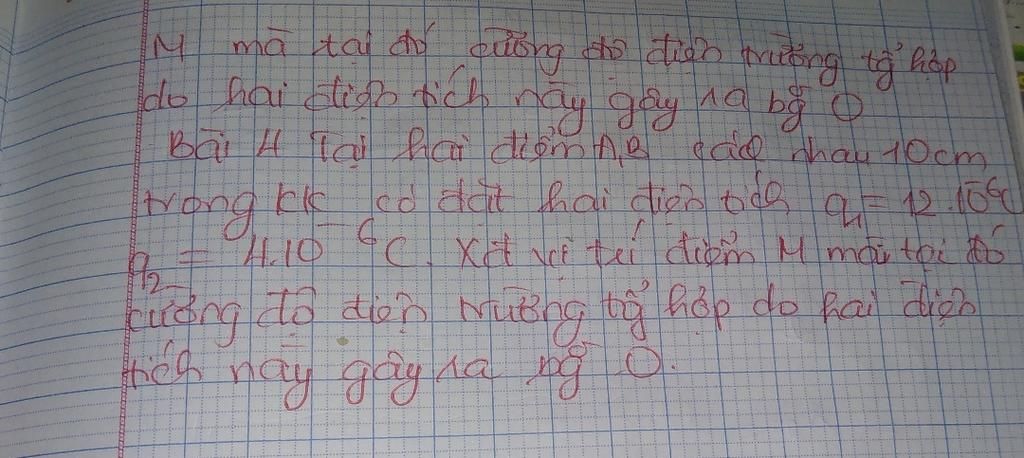 M mà tại đó cường độ điện trường tổ hợp
do hai điện tích này gây ra bg 0
Bài 4 Tại hai điểm A,B cách nhau 10cm
trong kk có đặt hai điện tích q1 = 12.10-6C
q2 = 4.10-6 C. Xét vị trí điểm M mà tại đó
cường độ điện trường tổ hợp do hai điện
tích này gây ra bg 0.